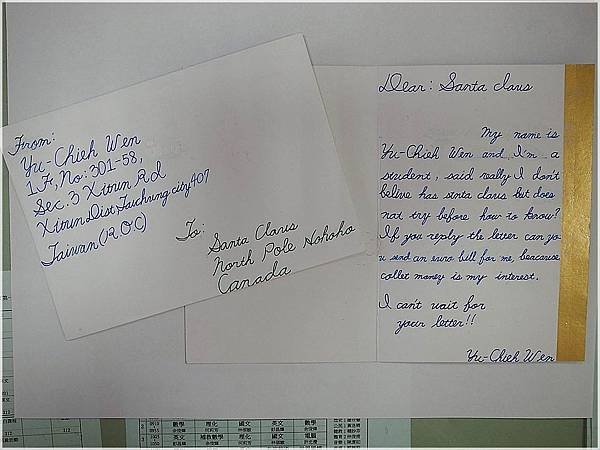 From:
Yu-Chieh Wen
1F, No:301-58,
Sec.3 Xitun Rd
Xitun Dist Taichung city 407
Taiwan (R.O.C)
To:
Santa Claus
North Pole Hohoho
Canada
Dear: Santa claus
My name is
Yu-Chieh Wen and I'm a
student, said really I don't
belive has santa claus but does
not try before how to know?
If you reply the letter can yo
u send an euro bill for me, beacause
collet money is my interest.
I can't wait for
your letter!!
Yu-Chieh Wen
數學 理化 國文 英文
英文 國文 電腦